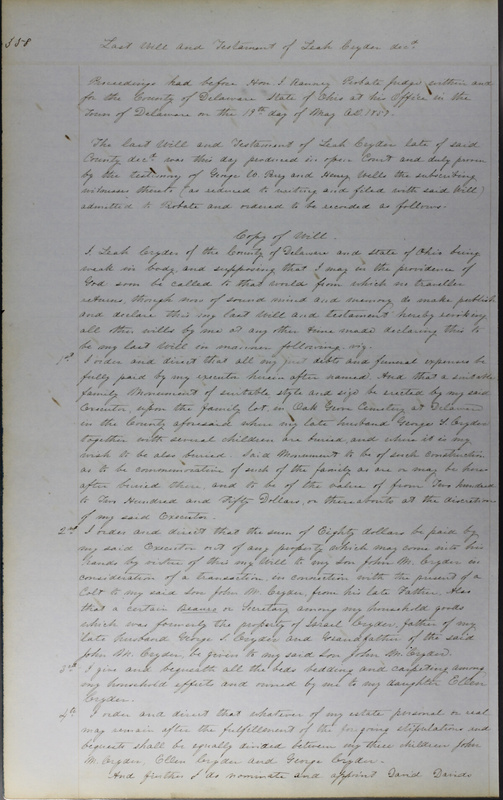 558
Last Will and Testament of Leah Cryder decd.
Proceedings had before Hon. T. Ranney Probate Judge within and
for the County of Delaware State of Ohio at his Office in the
Town of Delaware on the 19th day of May A.D.
The last Will and Testament of Leah Cryder late of said
County decd. was this day produced in open Court and duly proven
by the testimony of George W. and Henry Wells the subscribing
witnesses thereto (as reduced to writing and filed with said Will)
admitted to Probate and ordered to be recorded as follows.
Copy of Will.
I Leah Cryder of the County of Delaware and state of Ohio being
weak in body, and supposing that I may in the providence of
God soon be called to that world from which no traveller
returns, though now of sound mind and memory do make publish
and declare this my last Will and testament hereby revoking
all other wills by me at any other time made declaring this to
be my last Will in manner following. viz.
1st. I order and direct that all my just debts and funeral expenses be
fully paid by my executor herein after named. And that a suitable
family Monument of suitable style and size be erected by my said
Executor upon the family lot in Oak Grove Cemetery at Delaware
in the County aforesaid where my late husband George S. Cryder
together with several children are buried, and where it is my
wish to be also buried. Said Monument to be of such construction
as to be commemorative of such of the family as are or may be here
after buried there, and to be of the value of from Two hundred
to Two Hundred and Fifty Dollars, or thereabouts at the discretion
of my said Executor.
2nd. I order and direct that the sum of Eighty dollars be paid by
my said Executor out of any property which may come into his
hands by virtue of this my Will to my son John M. Cryder in
consideration of a transaction in connection with the present of a
Colt to my said Son John M. Cryder, from his late Father. Also
that a certain Beaurs or Secretary among my household goods
which was formerly the property of Israel Cryder, father of my
late husband George S. Cryder and Grandfather of the said
John M. Cryder, be given to my said son John M. Cryder.
3rd. I give and bequeath all the beds bedding and carpeting among
my household effects and owned by me to my daughter Ellen
Cryder.
4th. I order and direct that whatever of my estate personal or real
may remain after the fulfillment of the foregoing stipulations and
bequests shall be equally divided between my three children John
M. Cryder, Ellen Cryder and George Cryder.
And further I do nominate and appoint David Davids